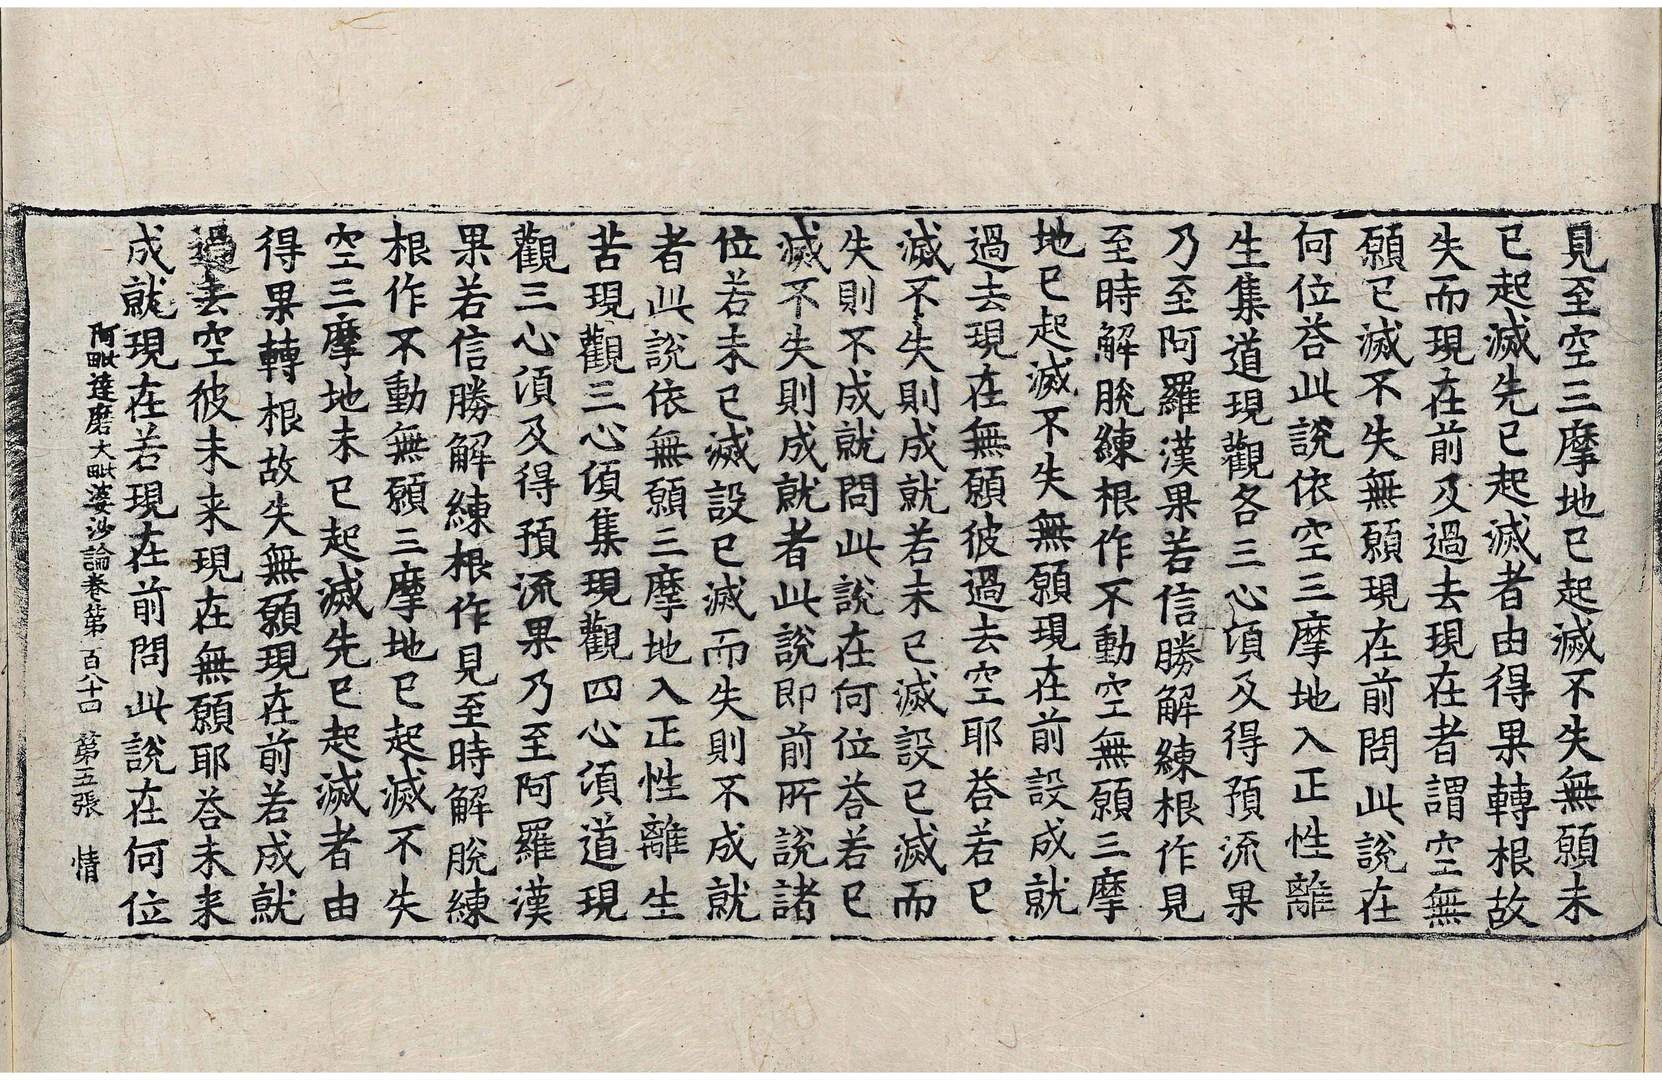 見至空三摩地已起滅不失無願未
已起滅先已起滅者由得果轉根故
失而現在前及過去現在者謂空無
願已滅不失無願現在前問此說在
何位荅此說依空三摩地入正性離
生集道現觀各三心頃及得預流果
乃至阿羅漢果若信勝解練根作見
至時解脫練根作不動空無願三摩
地已起滅不失無願現在前設成就
過去現在無願彼過去空耶荅若已
滅不失則成就若未已滅設已滅而
失則不成就問此說在何位荅若已
滅不失則成就者此說即前所說諸
位若未已滅設已滅而失則不成就
者此說依無願三摩地入正性離生
苦現觀三心頃集現觀四心頃道現
觀三心須及得預流果乃至阿羅漢
果若信勝解練根作見至時解脫練
根作不動無願三摩地已起滅不失
空三摩地未已起滅先已起滅者由
得果轉根故失無願現在前若成就
過去空彼未来現在無願耶荅未来
成就現在若現在前問此說在何位
阿毗達磨大毗婆沙論卷第一百八十四 第五張 情